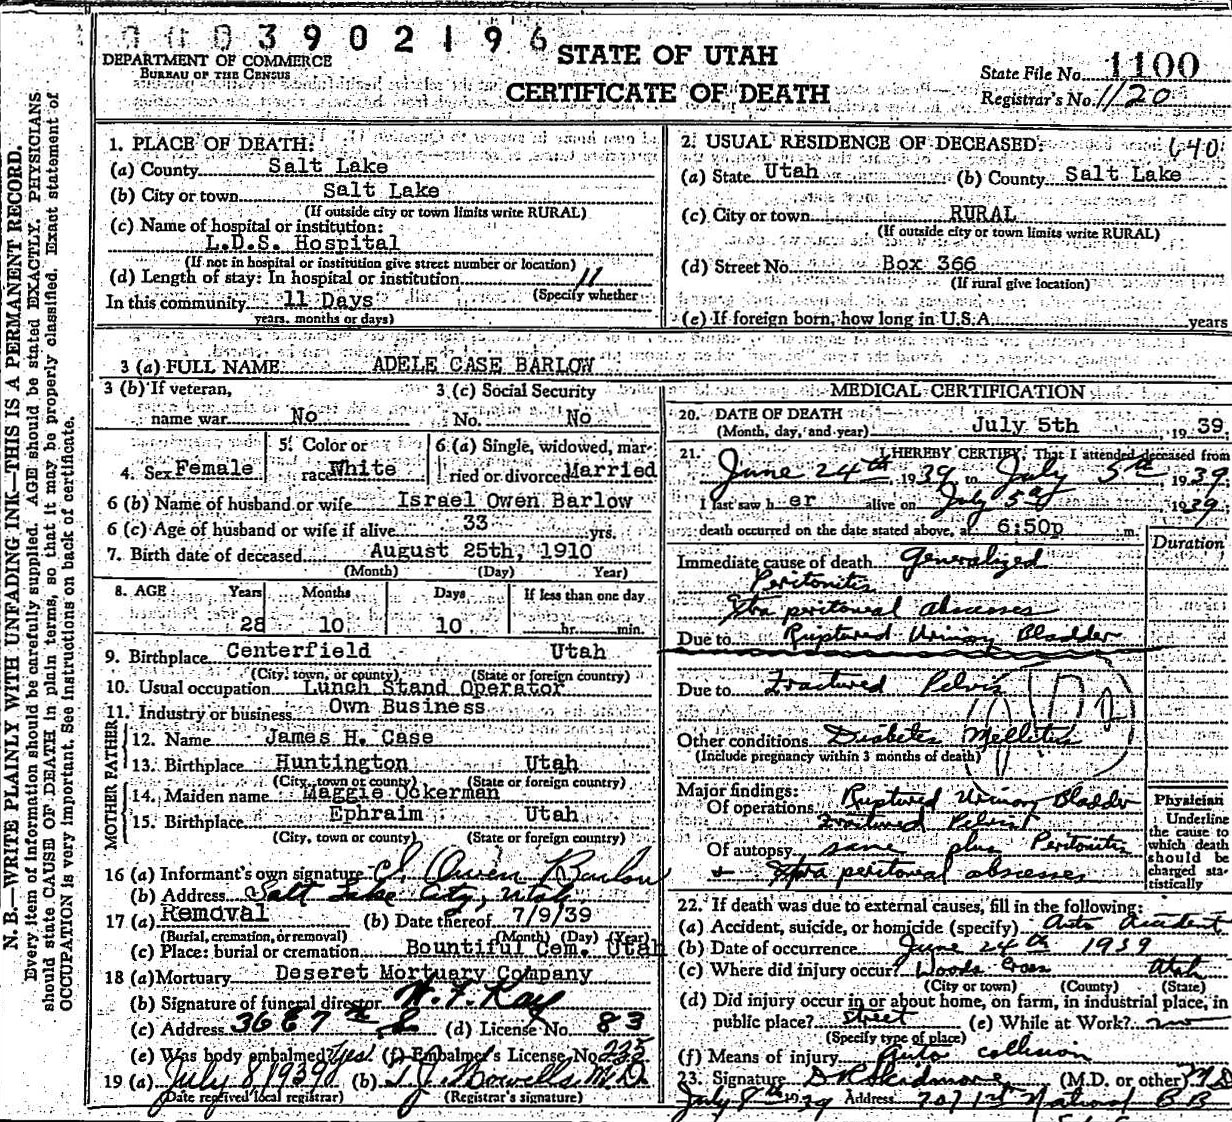 0003902196
DEPARTMENT OF COMMERCE
BUREAU OF THE CENSUS
STATE OF UTAH
CERTIFICATE OF DEATH
State File No. 1100
Registrar's No. 1120
N. B.—WRITE PLAINLY WITH UNFADING INK—THIS IS A PERMANENT RECORD.
Every item of information should be carefully supplied. AGE should be stated EXACTLY. PHYSICIANS
should state CAUSE OF DEATH in plain terms, so that it may be properly classified. Exact statement of
OCCUPATION is very important. See instructions on back of certificate.
1. PLACE OF DEATH:
(a) County Salt Lake
(b) City or town Salt Lake
(If outside city or town limits write RURAL)
(c) Name of hospital or institution:
L.D.S. Hospital
(If not in hospital or institution give street number or location)
(d) Length of stay: In hospital or institution 11
(Specify whether
In this community 11 Days
years, months or days)
2. USUAL RESIDENCE OF DECEASED: 640
(a) State Utah (b) County Salt Lake
(c) City or town RURAL
(If outside city or town limits write RURAL)
(d) Street No. Box 366
(If rural give location)
(e) If foreign born, how long in U.S.A. years
3 (a) FULL NAME ADELE CASE BARLOW
3 (b) If veteran,
name war No
3 (c) Social Security
No. No
4. Sex Female
5. Color or
race White
6 (a) Single, widowed, mar-
ried or divorced Married
6 (b) Name of husband or wife Israel Owen Barlow
6 (c) Age of husband or wife if alive 33 yrs.
7. Birth date of deceased August 25th, 1910
(Month) (Day) (Year)
8. AGE Years Months Days If less than one day
28 10 10 hr. min.
9. Birthplace Centerfield Utah
(City, town, or county) (State or foreign country)
10. Usual occupation Lunch Stand Operator
11. Industry or business Own Business
FATHER
12. Name James H. Case
13. Birthplace Huntington Utah
(City, town or county) (State or foreign country)
MOTHER
14. Maiden name Maggie Ockerman
15. Birthplace Ephraim Utah
(City, town or county) (State or foreign country)
16 (a) Informant's own signature I. Owen Barlow
(b) Address Salt Lake City, Utah
17 (a) Removal (b) Date thereof 7/9/39
(Burial, cremation, or removal) (Month) (Day) (Year)
(c) Place: burial or cremation Bountiful Cem. Utah
18 (a) Mortuary Deseret Mortuary Company
(b) Signature of funeral director
(c) Address 36 E 7th So (d) License No. 83
(e) Was body embalmed? Yes! (f) Embalmer's License No. 235
19 (a) July 8, 1939 (b) T.J. Howells M.D.
(Date received local registrar) (Registrar's signature)
MEDICAL CERTIFICATION
20. DATE OF DEATH
(Month, day, and year) July 5th, 1939.
21. I HEREBY CERTIFY, That I attended deceased from
June 24th, 1939, to July 5th, 1939.
I last saw her alive on July 5th, 1939
death occurred on the date stated above, at 6:50p m.
Duration
Immediate cause of death Generalized
Peritonitis
Extra peritoneal abscesses
Due to Ruptured Urinary Bladder
Due to Fractured Pelvis
Other conditions Diabetes Mellitus
(Include pregnancy within 3 months of death)
Major findings:
Of operations Ruptured Urinary Bladder
Fractured Pelvis
Of autopsy same plus Peritonitis
+ Extra peritoneal abscesses
Physician
Underline
the cause to
which death
should be
charged sta-
tistically
22. If death was due to external causes, fill in the following:
(a) Accident, suicide, or homicide (specify) Auto Accident
(b) Date of occurrence June 24th 1939
(c) Where did injury occur? Woods Cross Utah
(City or town) (County) (State)
(d) Did injury occur in or about home, on farm, in industrial place, in
public place? Street (e) While at Work? no
(Specify type of place)
(f) Means of injury Auto collision
23. Signature D R Skidmore (M.D. or other) M D
July 8th 1939 Address 707 1st National